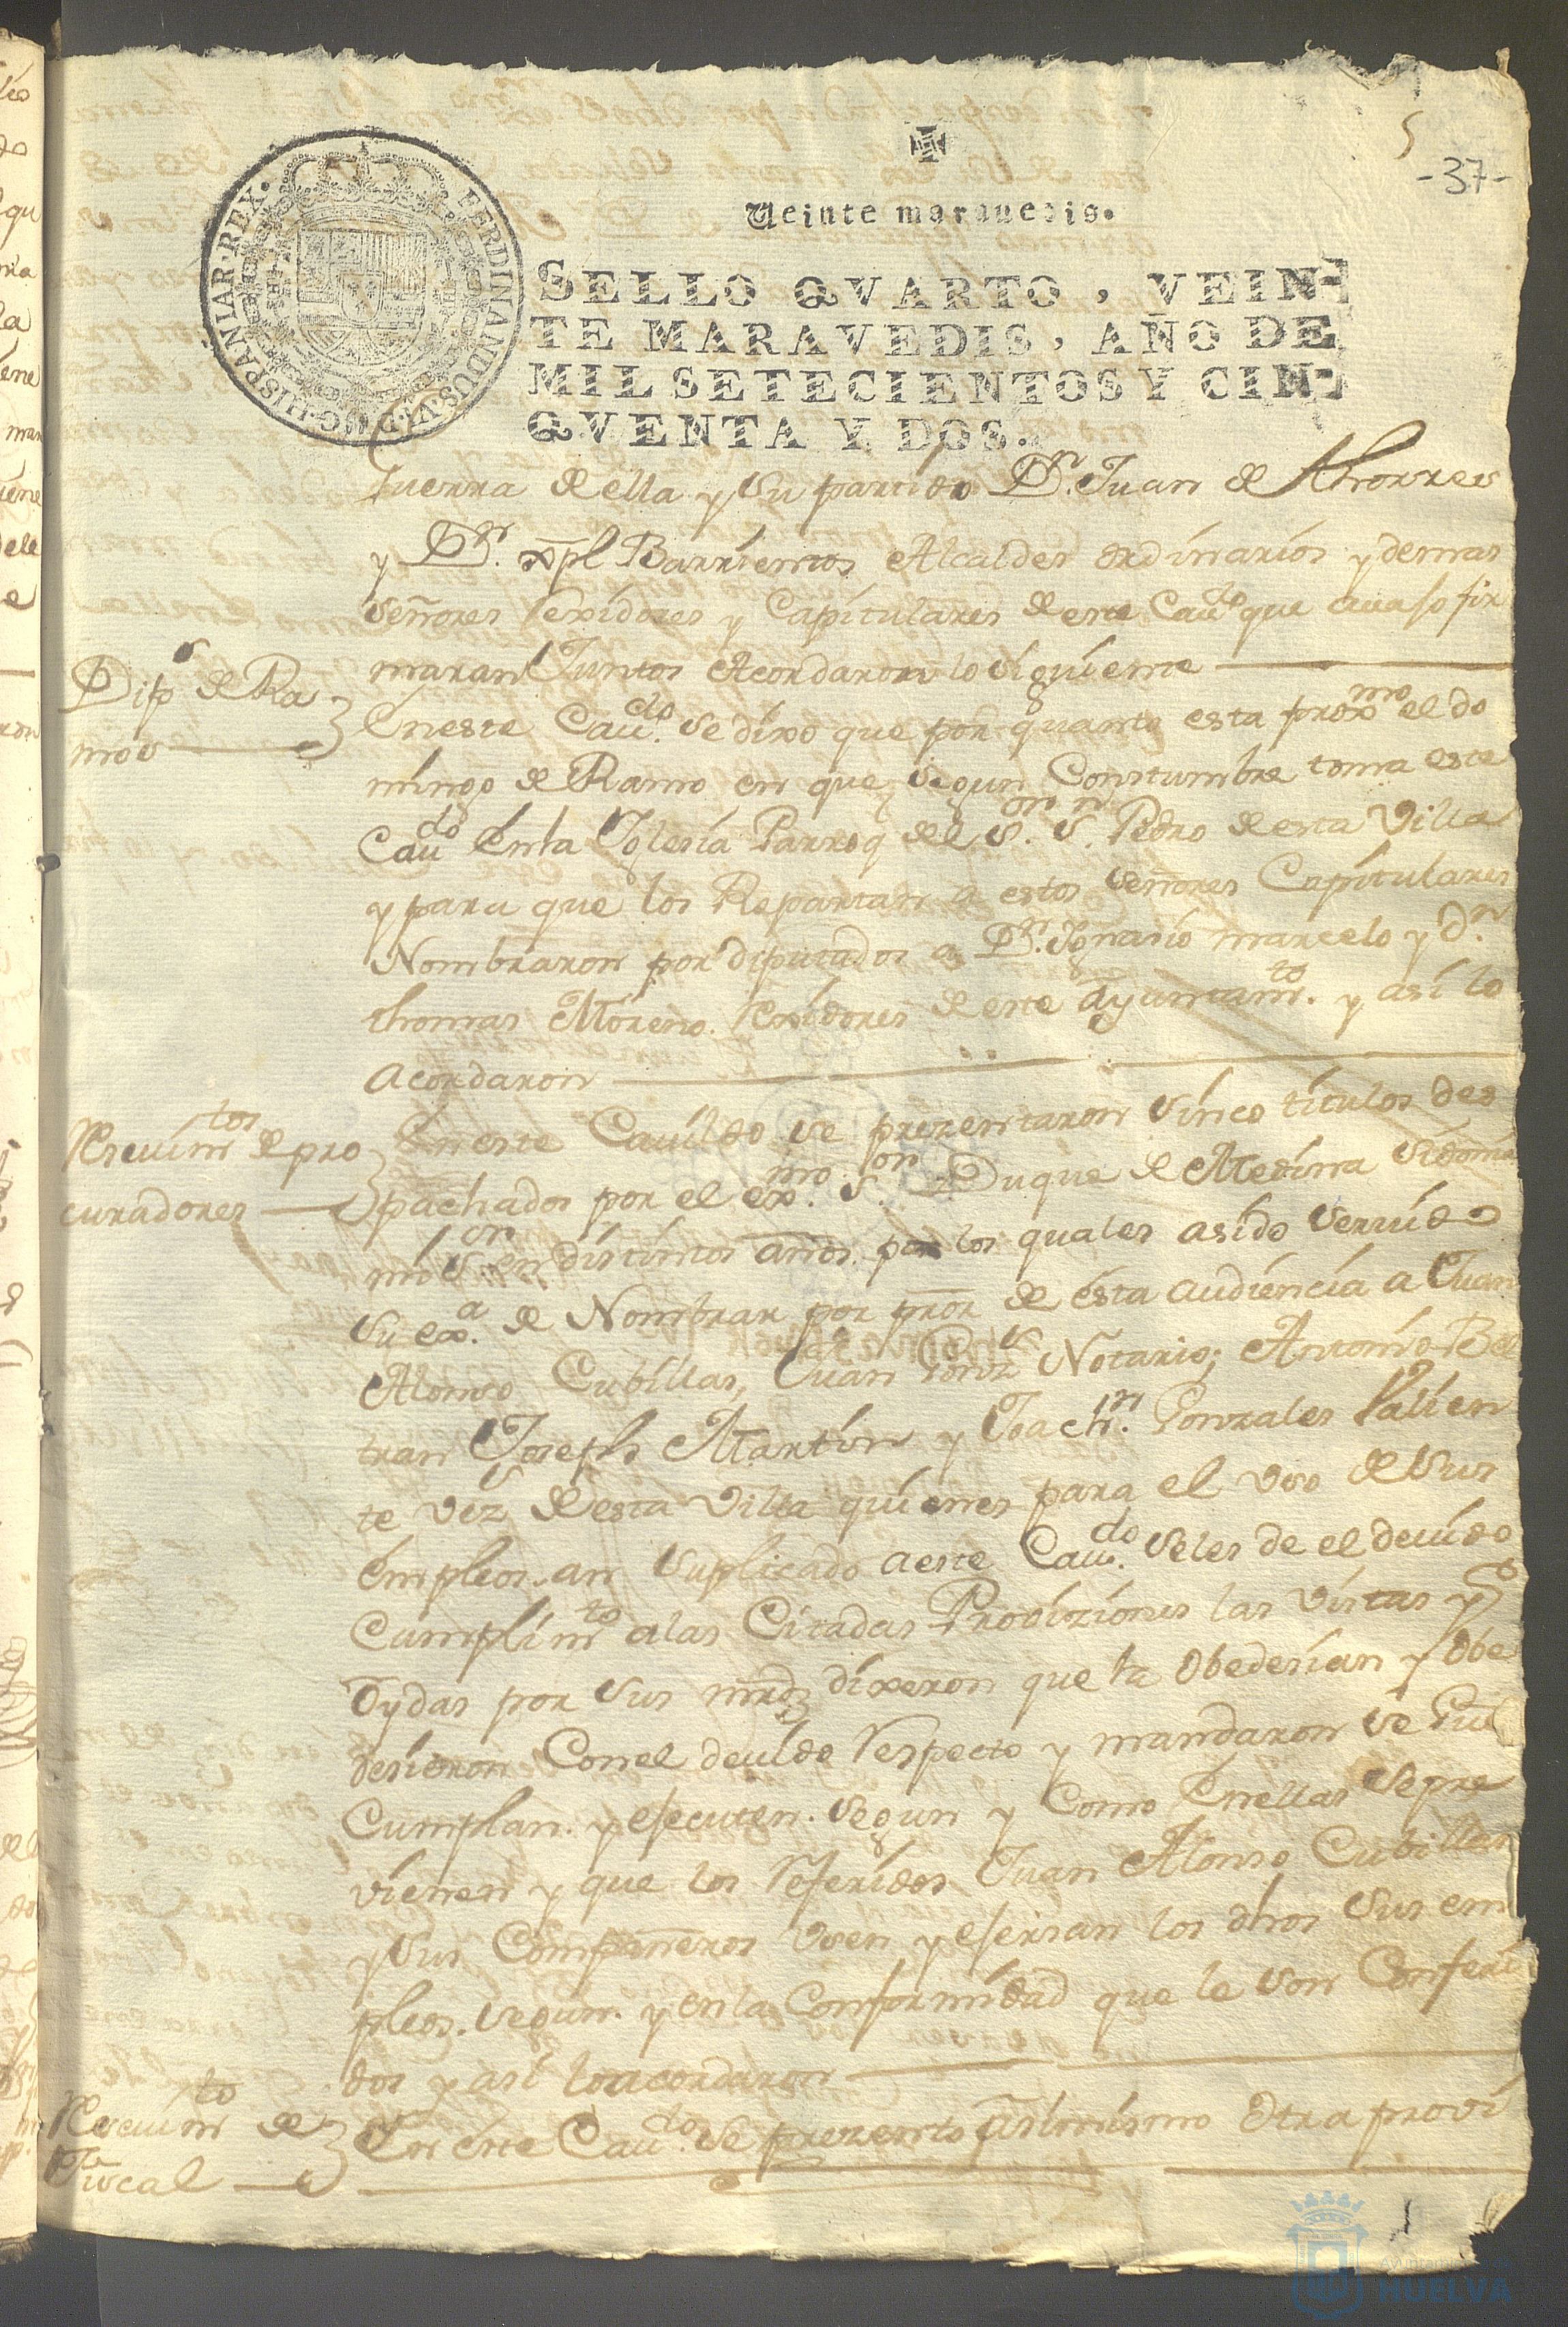 5
-37-
Veinte maravedis.
FERDINANDUS·VI·D·G·HISPANIAR·REX·
SELLO QVARTO, VEIN-
TE MARAVEDIS, AÑO DE
MIL SETECIENTOS Y CIN-
QVENTA Y DOS.
Guerra de ella y su partido Dn. Juan de Thorres
y Dn. Xpl Barrientos Alcaldes ordinarios y demas
señores Rexidores y Capitulares de este Caudo que auaso fir
maran Juntos Acordaron lo siguiente
Dips de Ra
mos
En este Caudo. se dixo que por quanto esta proxmo el do
mingo de Ramo en que segun Constumbre toma este
Caudo En la Iglesia Parroq del Sor. Sn. Pedro de esta Villa
y para que los Repartan a estos señores Capitulares
Nombraron por diputados a Dn. Ygnasio marcelo y Dn
thomas Moreno Rexidores de este Ayuntamto. y asi lo
acordaron
Resevimtos de pro
curadores
En este Cauildo se prezentaron sinco titulos des
pachados por el exmo. Sor. Duque de Medina Sidonia
mi Sor. en distintos años por los quales asido servido
su exa. de Nombrar por pror de esta audiencia a Juan
Alonso Cubillas, Juan Gonzs Notario; Antonio Bel
tran Joseph Martin y Joachn. Gonzales Valien
te vezs de esta Villa quienes para el uso de sus
empleos an suplicado a este Caudo. seles de el deuido
Cumplimto alas Citadas Proviziones las vistas y
Oydas por sus mrdz dixeron que la obedesian y obe
desieron Conel deuido Respecto y mandaron se Gu
Cumplan y esecuten segun y Como En ellas se pre
vienen y que los Referidos Juan Alonso Cubillas
y sus Compañeros usen y esersan los dhos sus em
pleos segun y en la Conformidad que le son Conferi
dos y asi lo acordaron
Resevimto de
Pte
fiscal
En este Caudo. se prezento asimismo Otra provi
Ayuntamiento de
HUELVA